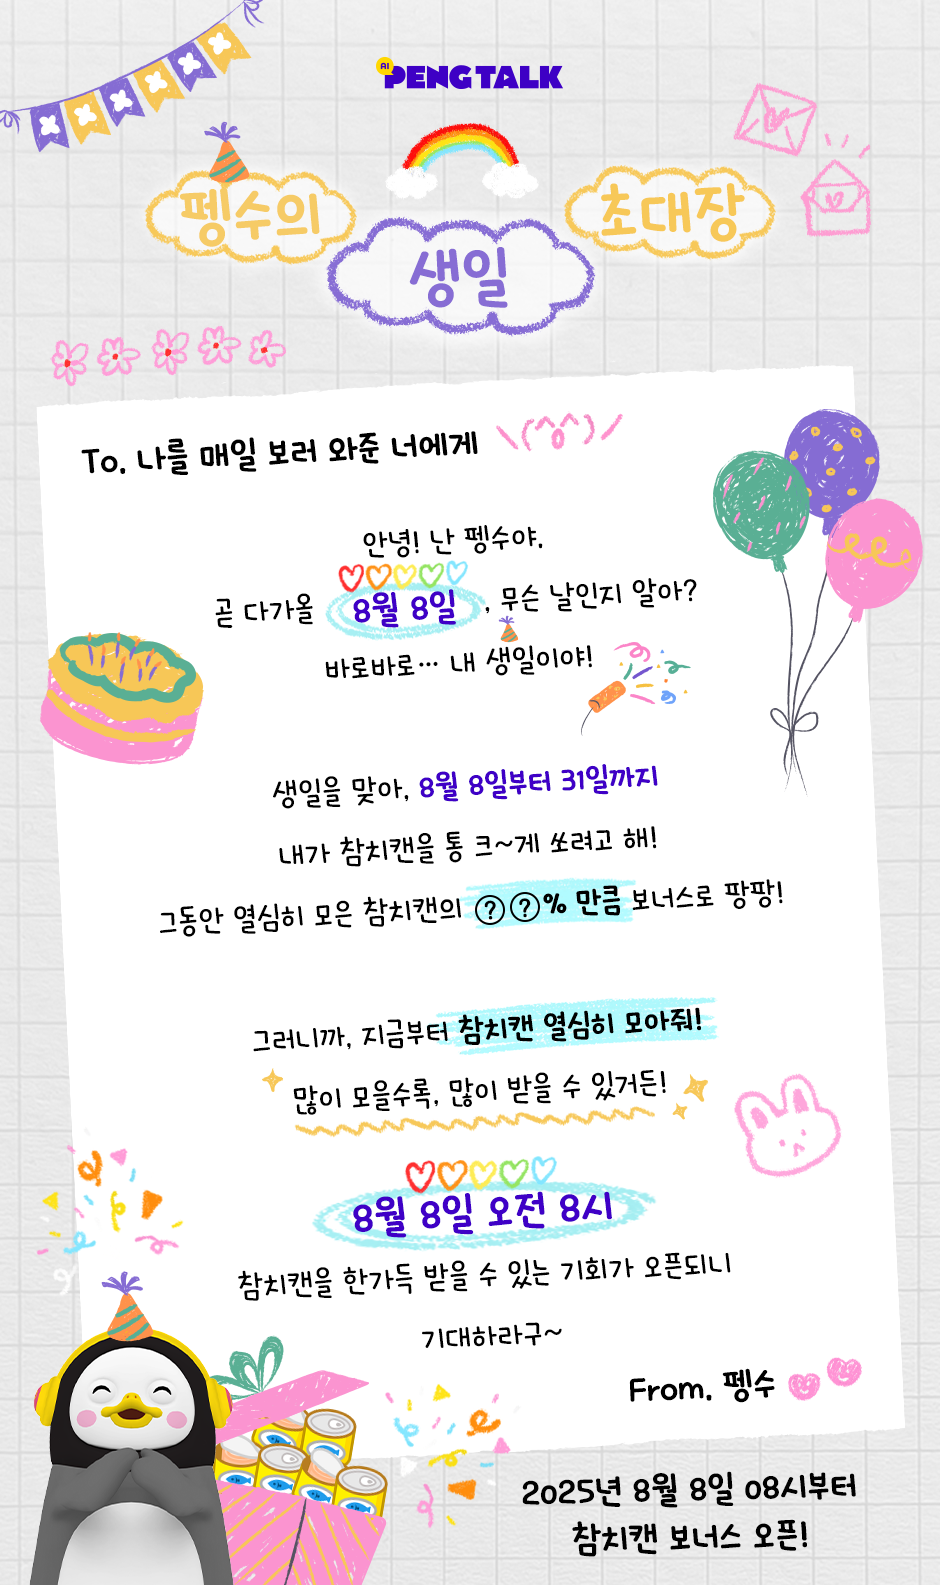 AI PENGTALK
펭수의 생일 초대장
To. 나를 매일 보러 와준 너에게 \(^o^)/
안녕! 난 펭수야.
곧 다가올 8월 8일, 무슨 날인지 알아?
바로바로… 내 생일이야!
생일을 맞아, 8월 8일부터 31일까지
내가 참치캔을 통 크~게 쏘려고 해!
그동안 열심히 모은 참치캔의 ??% 만큼 보너스로 팡팡!
그러니까, 지금부터 참치캔 열심히 모아줘!
많이 모을수록, 많이 받을 수 있거든!
8월 8일 오전 8시
참치캔을 한가득 받을 수 있는 기회가 오픈되니
기대하라구~
From. 펭수
2025년 8월 8일 08시부터
참치캔 보너스 오픈!